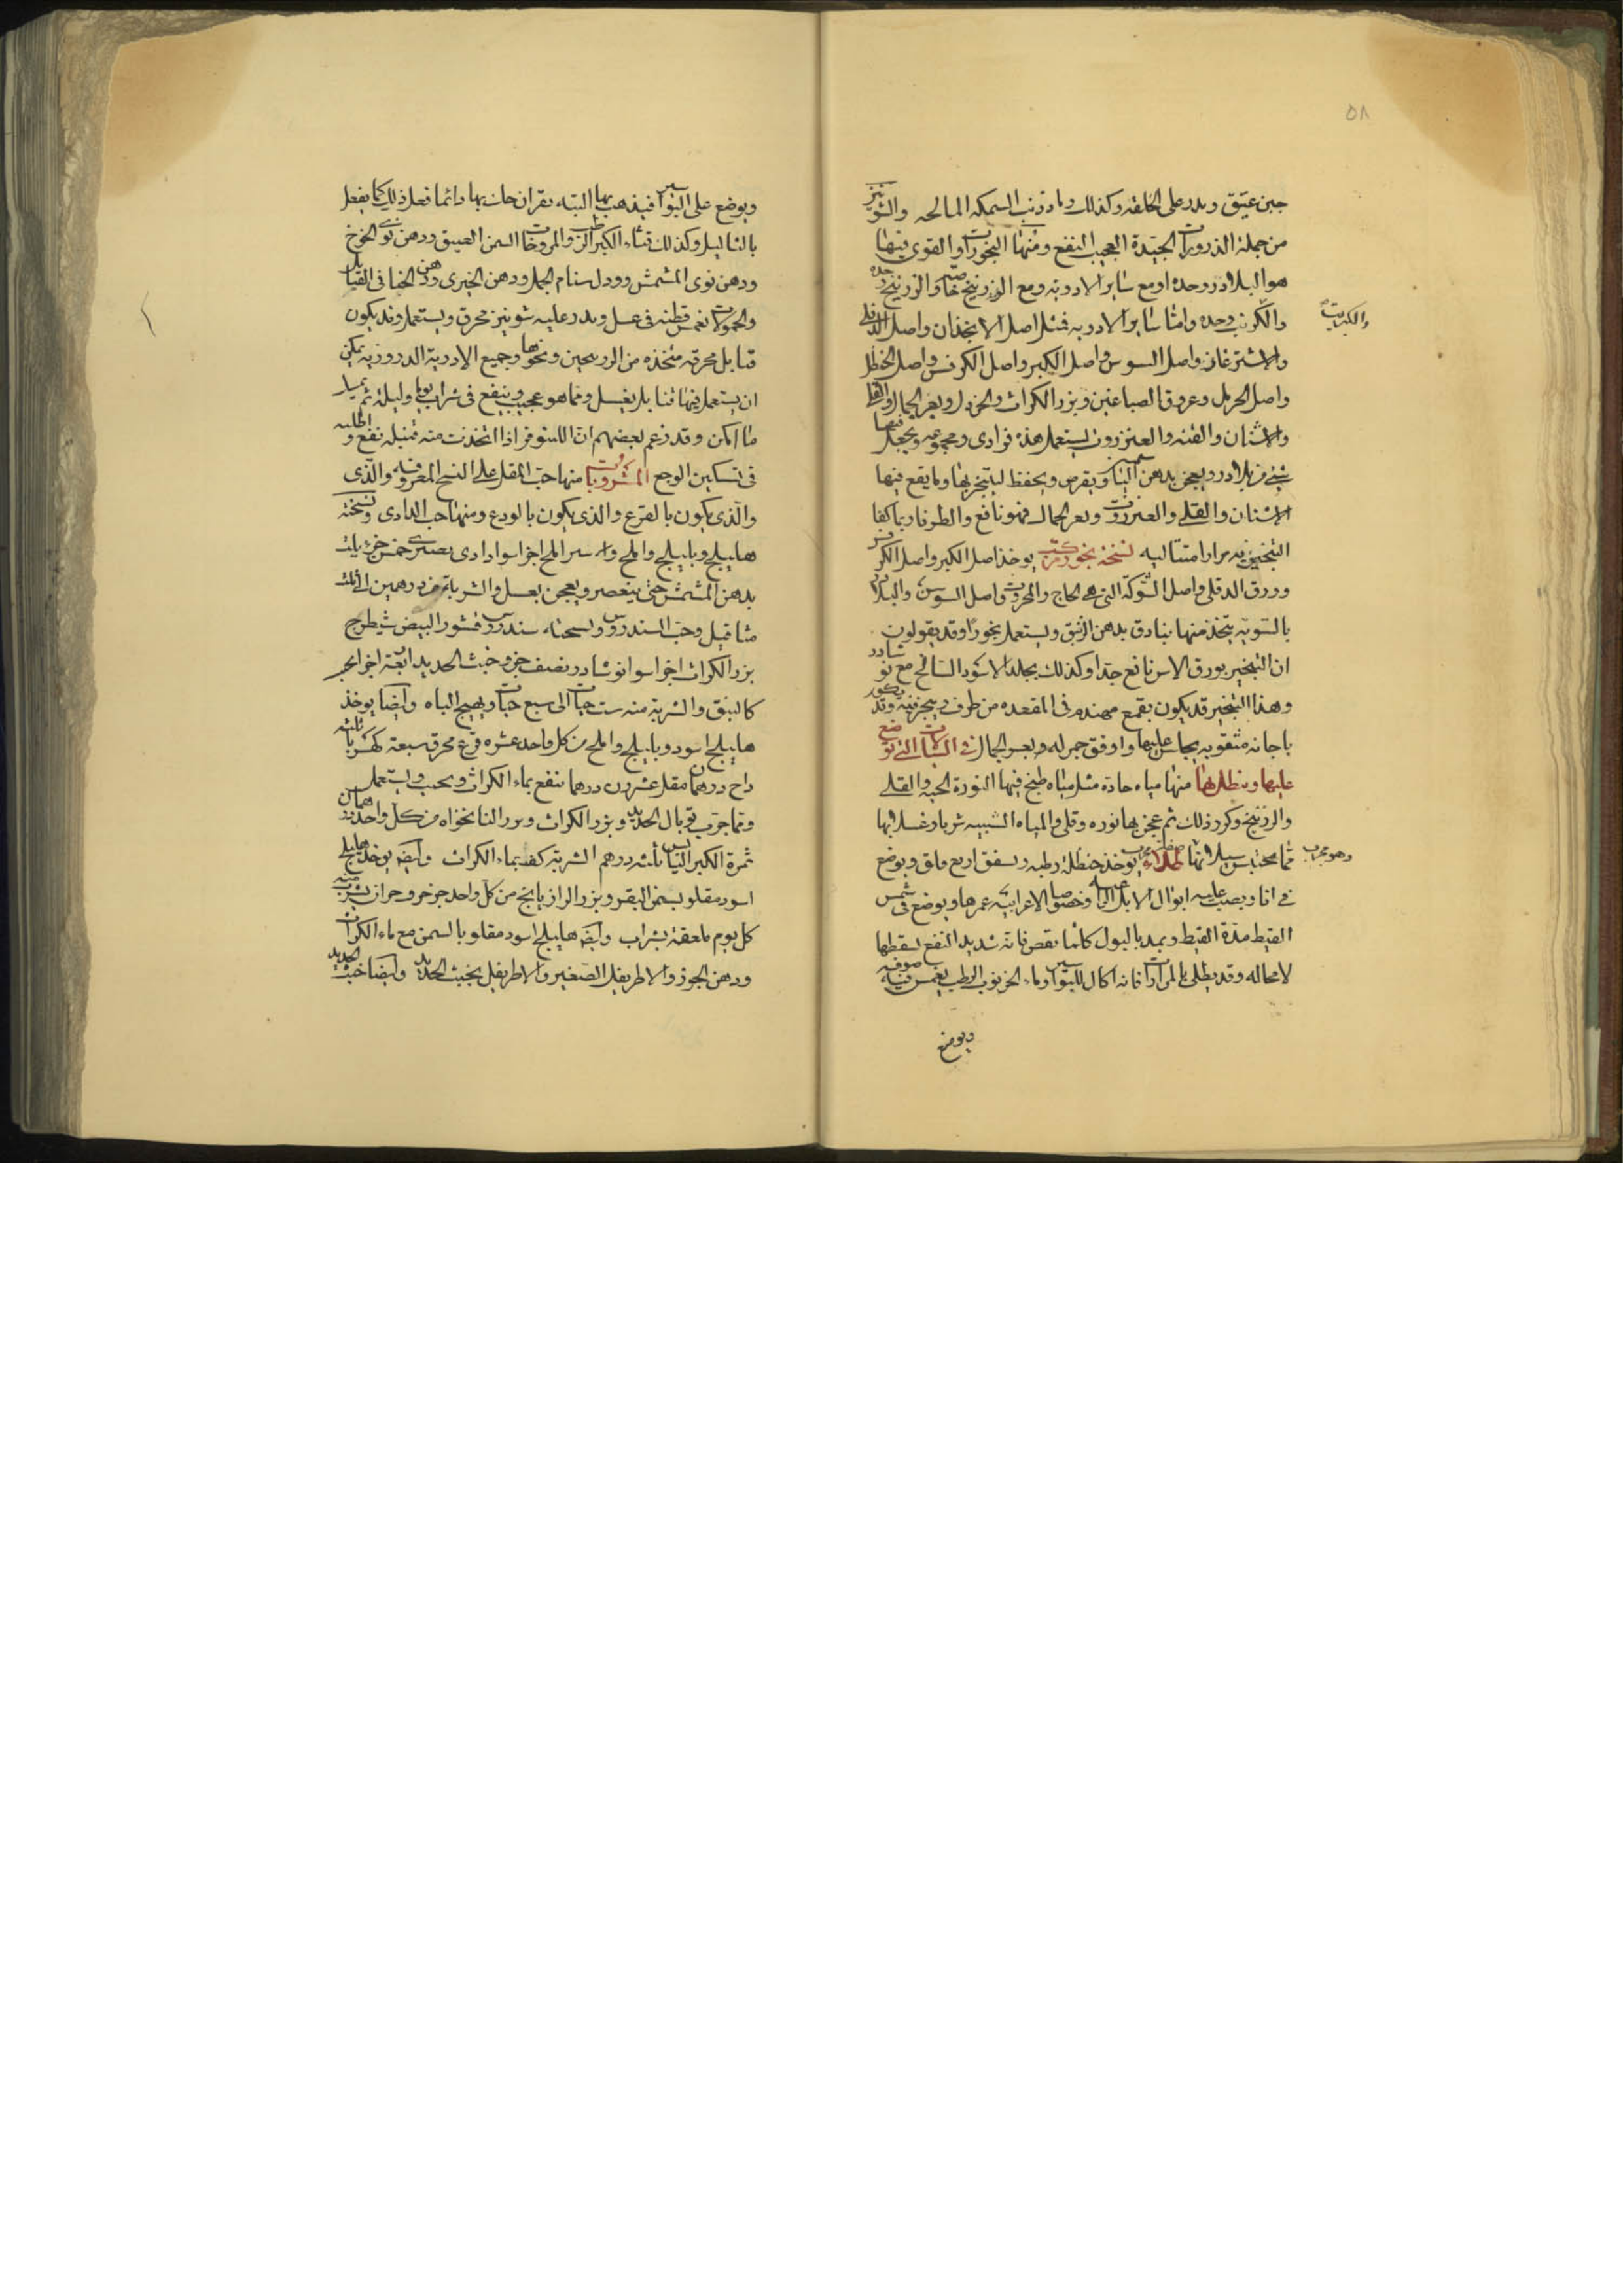 ٥٨
جبن عتيق ويدر على الحلقه وكذلك رماد ذنب السمكه المالحه والشونيز
من جملة الذرورات الجيدة العجيب النفع ومنها البخورات والقوى فيها
هو البلادر وحده او مع ساير الادويه ومع الزرنيخ خاصة والزرنيخ وحده
والكرنب وحده واما ساير الادويه فمثل اصل الانجذان واصل الدفلى
والكبريت
والاشترغاز واصل السوس واصل الكبر واصل الكرفس واصل الحنظل
واصل الحرمل وعروق الصباغين وبزر الكراث والخردل وبعر الجمال والقلى
والاشنان والقنه والعنزروت يستعمل هذه فرادى ومجموعه ويجعل فيها
شئ من بلادر ويعجن بدهن الياسمين ويقرص ويحفظ ليتبخر بها ومما يقع فيها
الاشنان والقلى والعنزروت وبعر الجمال فهو نافع والطرفا ربما كفا
التبخير به مرارا متتاليه نسخة بخور مركب يوخذ اصل الكبر واصل الكرفس
وورق الدفلى واصل الشوكة التى هى الحاج والمحروت واصل السوسن والبلادر
بالسويه يتخذ منها بنادق بدهن الزنبق ويستعمل بخورا وقد يقولون
ان التبخير بورق الاس نافع جدا وكذلك بجلد الاسود السالخ مع نوشادر
وهذا التبخير قد يكون بقمع مهندم فى المقعده من طرف ويبخر فيه وقد يكون
باجانه مثقوبه يجلس عليها واوفق جمر له وبعر الجمال فى السيالات التى توضع
عليها وينطل بها منها مياه حاده مثل مياه طبخ فيها النورة الحيه والقلى
والزرنيخ وكرر ذلك ثم عجن بها نوره وقلى والمياه الشبيه شربا وغسلا بها
مما يحتبس سيلانها طلاء يوخذ حنظلة رطبه ويسقق اربع فلق ويوضع
وهو مجرب
فى انا ويصب عليه ابوال الابل الراعيه وخصوصا الاعرابيه غمرها ويوضع فى شمس
القيظ مدة القيظ ويمد بالبول كلما نقص فانه شديد النفع يسقطها
لا محاله وقد يطلى بالمرارات فانه اكال للبواسير وماء الخرنوب الرطب يغمس فيه صوفه
ويوضع
ويوضع على البواسير فيذهب بها البته بقران خان بها دائما فعل ذلك كما يفعل
بالثاليل وكذلك قثاء الكبر الرطب والمروخات السمن العتيق ودهن نوى الخوخ
ودهن نوى المشمش وودك سنام الجمل ودهن الخيرى ودهن الحنا فى الفتايل
والحمولات يغمس قطنه فى عسل ويدر عليه شونيز محرق ويستعمل وقد يكون
فتايل محرقه متخذه من الزرنيخين ونحوها وجميع الادوية الذروريه يمكن
ان يستعمل فيها فتايل بعسل ومما هو عجيب وينفع فى شراب يوما وليلة ثم يسيل
ما امكن وقد زعم بعضهم ان اللينوفر اذا اتخذت منه فتيله نفع واطليه
فى تسكين الوجع المشروبات منها حب المقل على النسخ المعروفه والذى
والذى يكون بالقرع والذى يكون بالودع ومنها حب الدادى ونسخته
هليلج وبليلج واملج وا سير املج اجزا سوا دادى بصرى خمس جزو يلت
بدهن المشمش حتى ينعصر ويعجن بعسل والشربة من درهمين الى ثلث
مثاقيل وحب السندروس ونسخته سندروس وقشور البيض شيطرج
بزر الكراث اجزا سوا نوشادر نصف جزو خبث الحديد اربعة اجزا يحبب
كالنبق والشربة منه ست حبات الى سبع حبات ويهيج الباه وايضا يوخذ
هليلج اسود وبليلج واملج من كل واحد عشره قرع محرق سبعة كهربا ثلثه
زاج درهمان مقل عشرون درهما ينقع بماء الكراث ويحبب ويستعمل
ومما جرب توبال الحديد وبزر الكراث وبزر النانخواه من كل واحد درهمان
ثمرة الكبر اليابس ثلثه دراهم الشربة كف بماء الكراث وايضا يوخذ هليلج
اسود مقلو بسمن البقر وبزر الرازيانج من كل واحد جزو حرف جزان يشرب منه
كل يوم ملعقة بشراب وايضا هليلج اسود مقلو بالسمن مع ماء الكراث
ودهن الجوز والاطريفل الصغير والاطريفل بخبث الحديد وايضا خبث الحديد